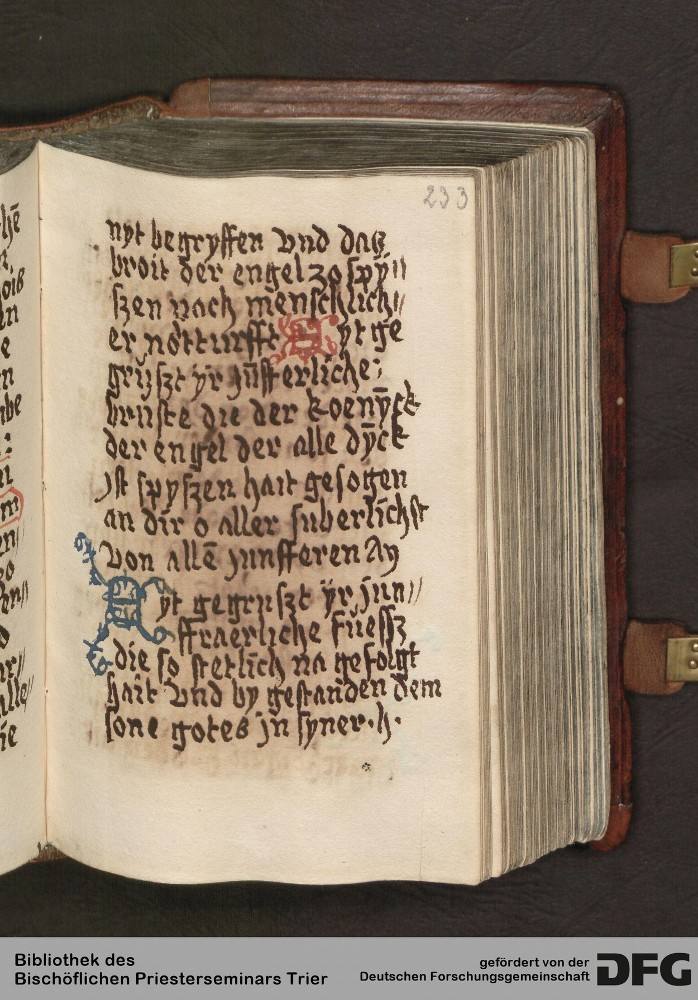 233
nyt begryffen vnd daz
broit der engel zo spÿ//
szen nach menschlich//
er notturfft Syt ge
grüszt yr jūfferliche:
bruste die der koenȳck
der engel der alle dȳck
jst spyszen hait gesogen
an dir o aller suberlichst
von allē junfferen Ay
Syt gegruszt ÿr jun//
ffraerliche füessz
die so stetlich na gefolgt
hait vnd by gestanden dem
sone gotes jn syner .h.
Bibliothek des
Bischöflichen Priesterseminars Trier
gefördert von der
Deutschen Forschungsgemeinschaft
DFG